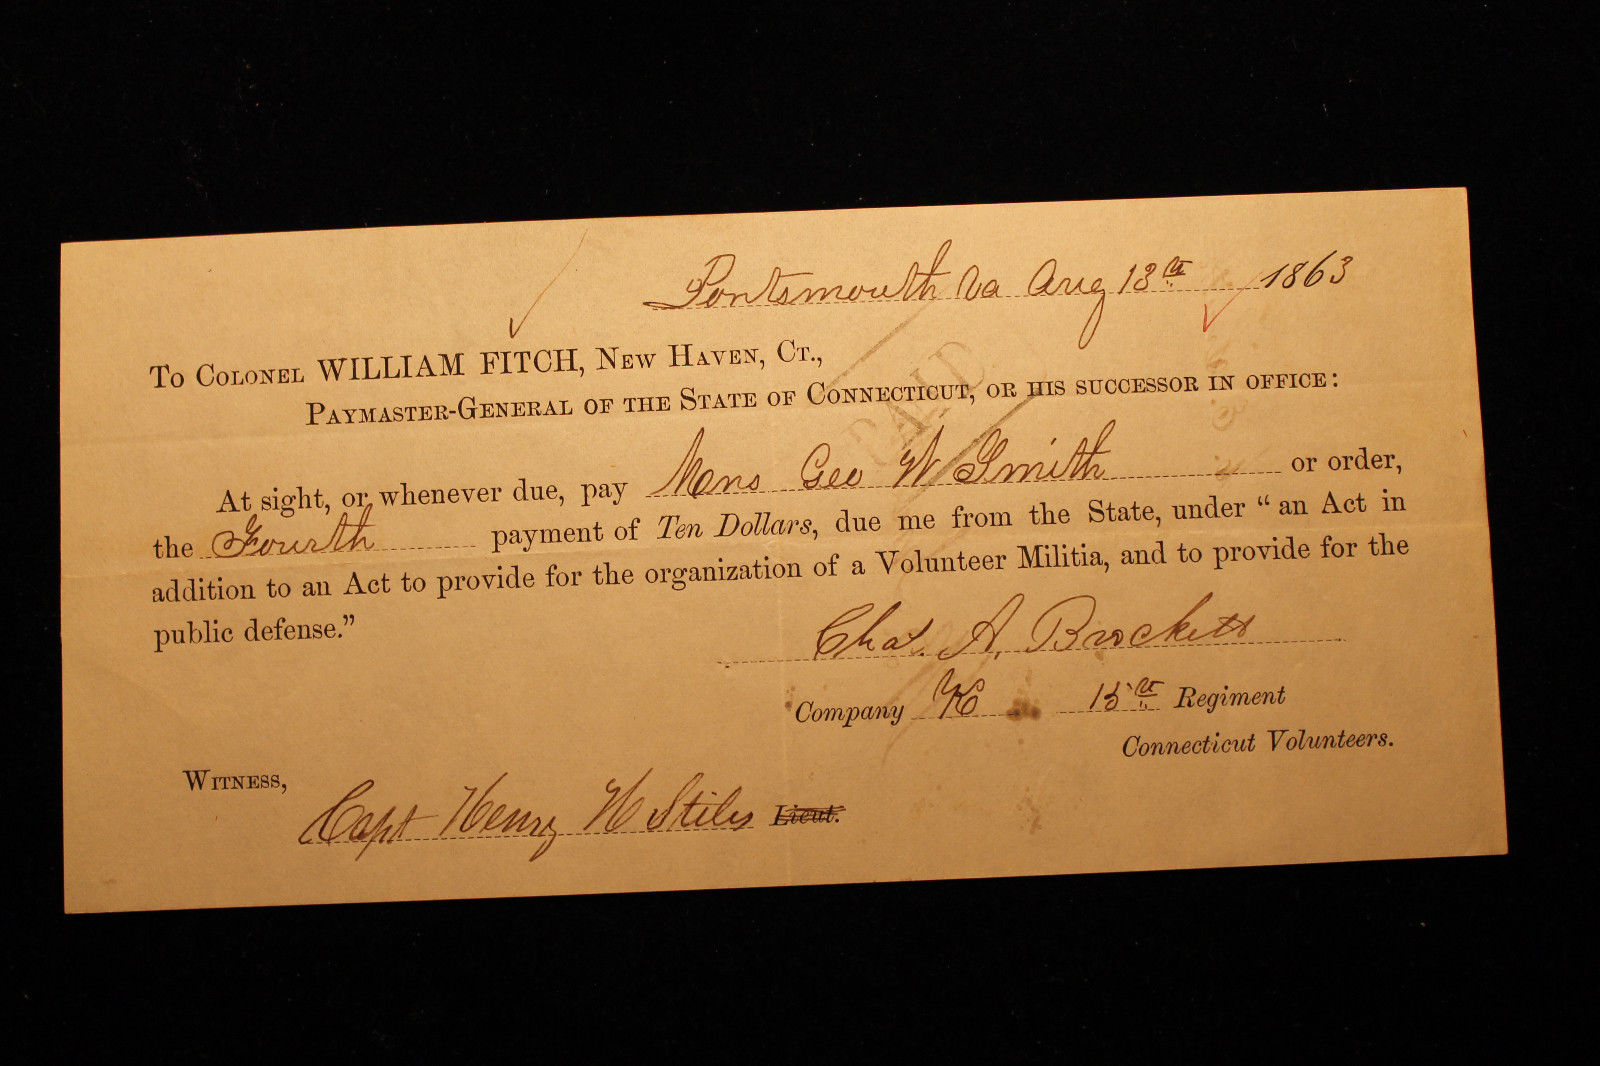 Portsmouth Va Aug 13th 1863
To Colonel WILLIAM FITCH, New Haven, Ct.,
Paymaster-General of the State of Connecticut, or his successor in office:
PAID
At sight, or whenever due, pay Mrs Geo W Smith or order,
the Fourth payment of Ten Dollars, due me from the State, under “ an Act in
addition to an Act to provide for the organization of a Volunteer Militia, and to provide for the
public defense.”
Chas. A. Brockett
Company K 15th Regiment
Connecticut Volunteers.
Witness,
Capt Henry H Stiles Lieut.